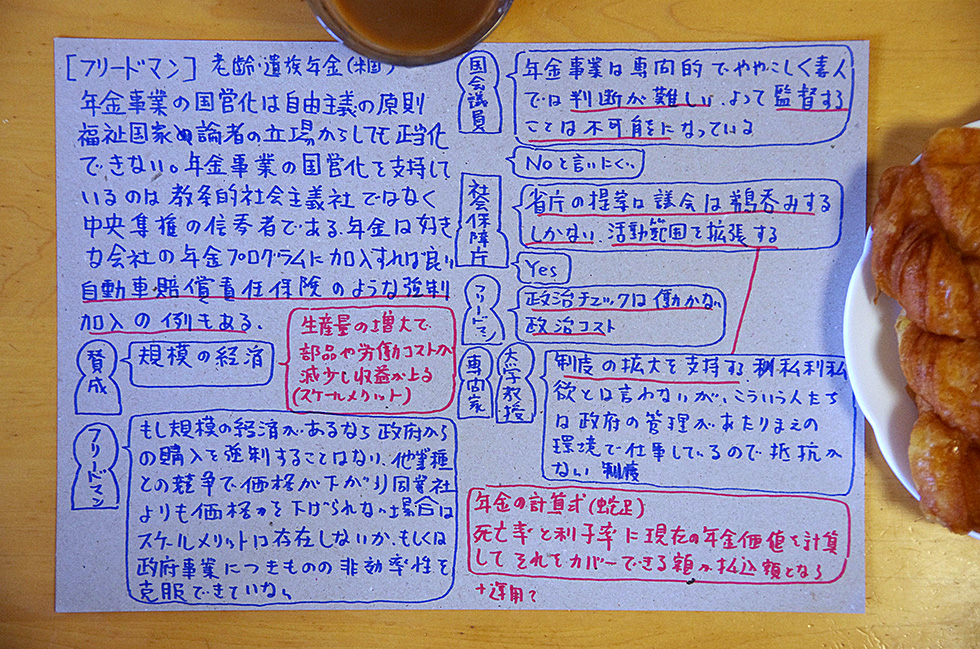 [フリードマン] 老齢・遺族年金(米国)
年金事業の国営化は自由主義の原則
福祉国家論者の立場からしても正当化
できない。年金事業の国営化を支持して
いるのは教条的社会主義社ではなく
中央集権の信奉者である、年金は好き
な会社の年金プログラムに加入すれば良い
自動車賠償責任保険のような強制
加入の例もある、
賛成
規模の経済
生産量の増大で
部品や労働コストが
減少し収益が上る
(スケールメリット)
フリードマン
もし規模の経済があるなら政府から
の購入を強制することはない、他業種
との競争で価格が下がり同業社
よりも価格を下げられない場合は
スケールメリットは存在しないか、もしくは
政府事業につきものの非効率性を
克服できていない
国会議員
年金事業は専門的でややこしく素人
では判断が難しい、よって監督する
ことは不可能になっている
Noと言いにくい
社会保障庁
省庁の提案は議会は鵜呑みする
しかない、活動範囲を拡張する
Yes
フリードマン
政治チェックは働かない
政治コスト
専門家
大学教授
制度の拡大を支持する、私利私
欲とは言わないが、こういう人たち
は政府の管理があたりまえの
環境で仕事しているので抵抗が
ない 制度
年金の計算式(蛇足)
死亡率と利子率に現在の年金価値を計算
してそれをカバーできる額が払込額となる
+運用で